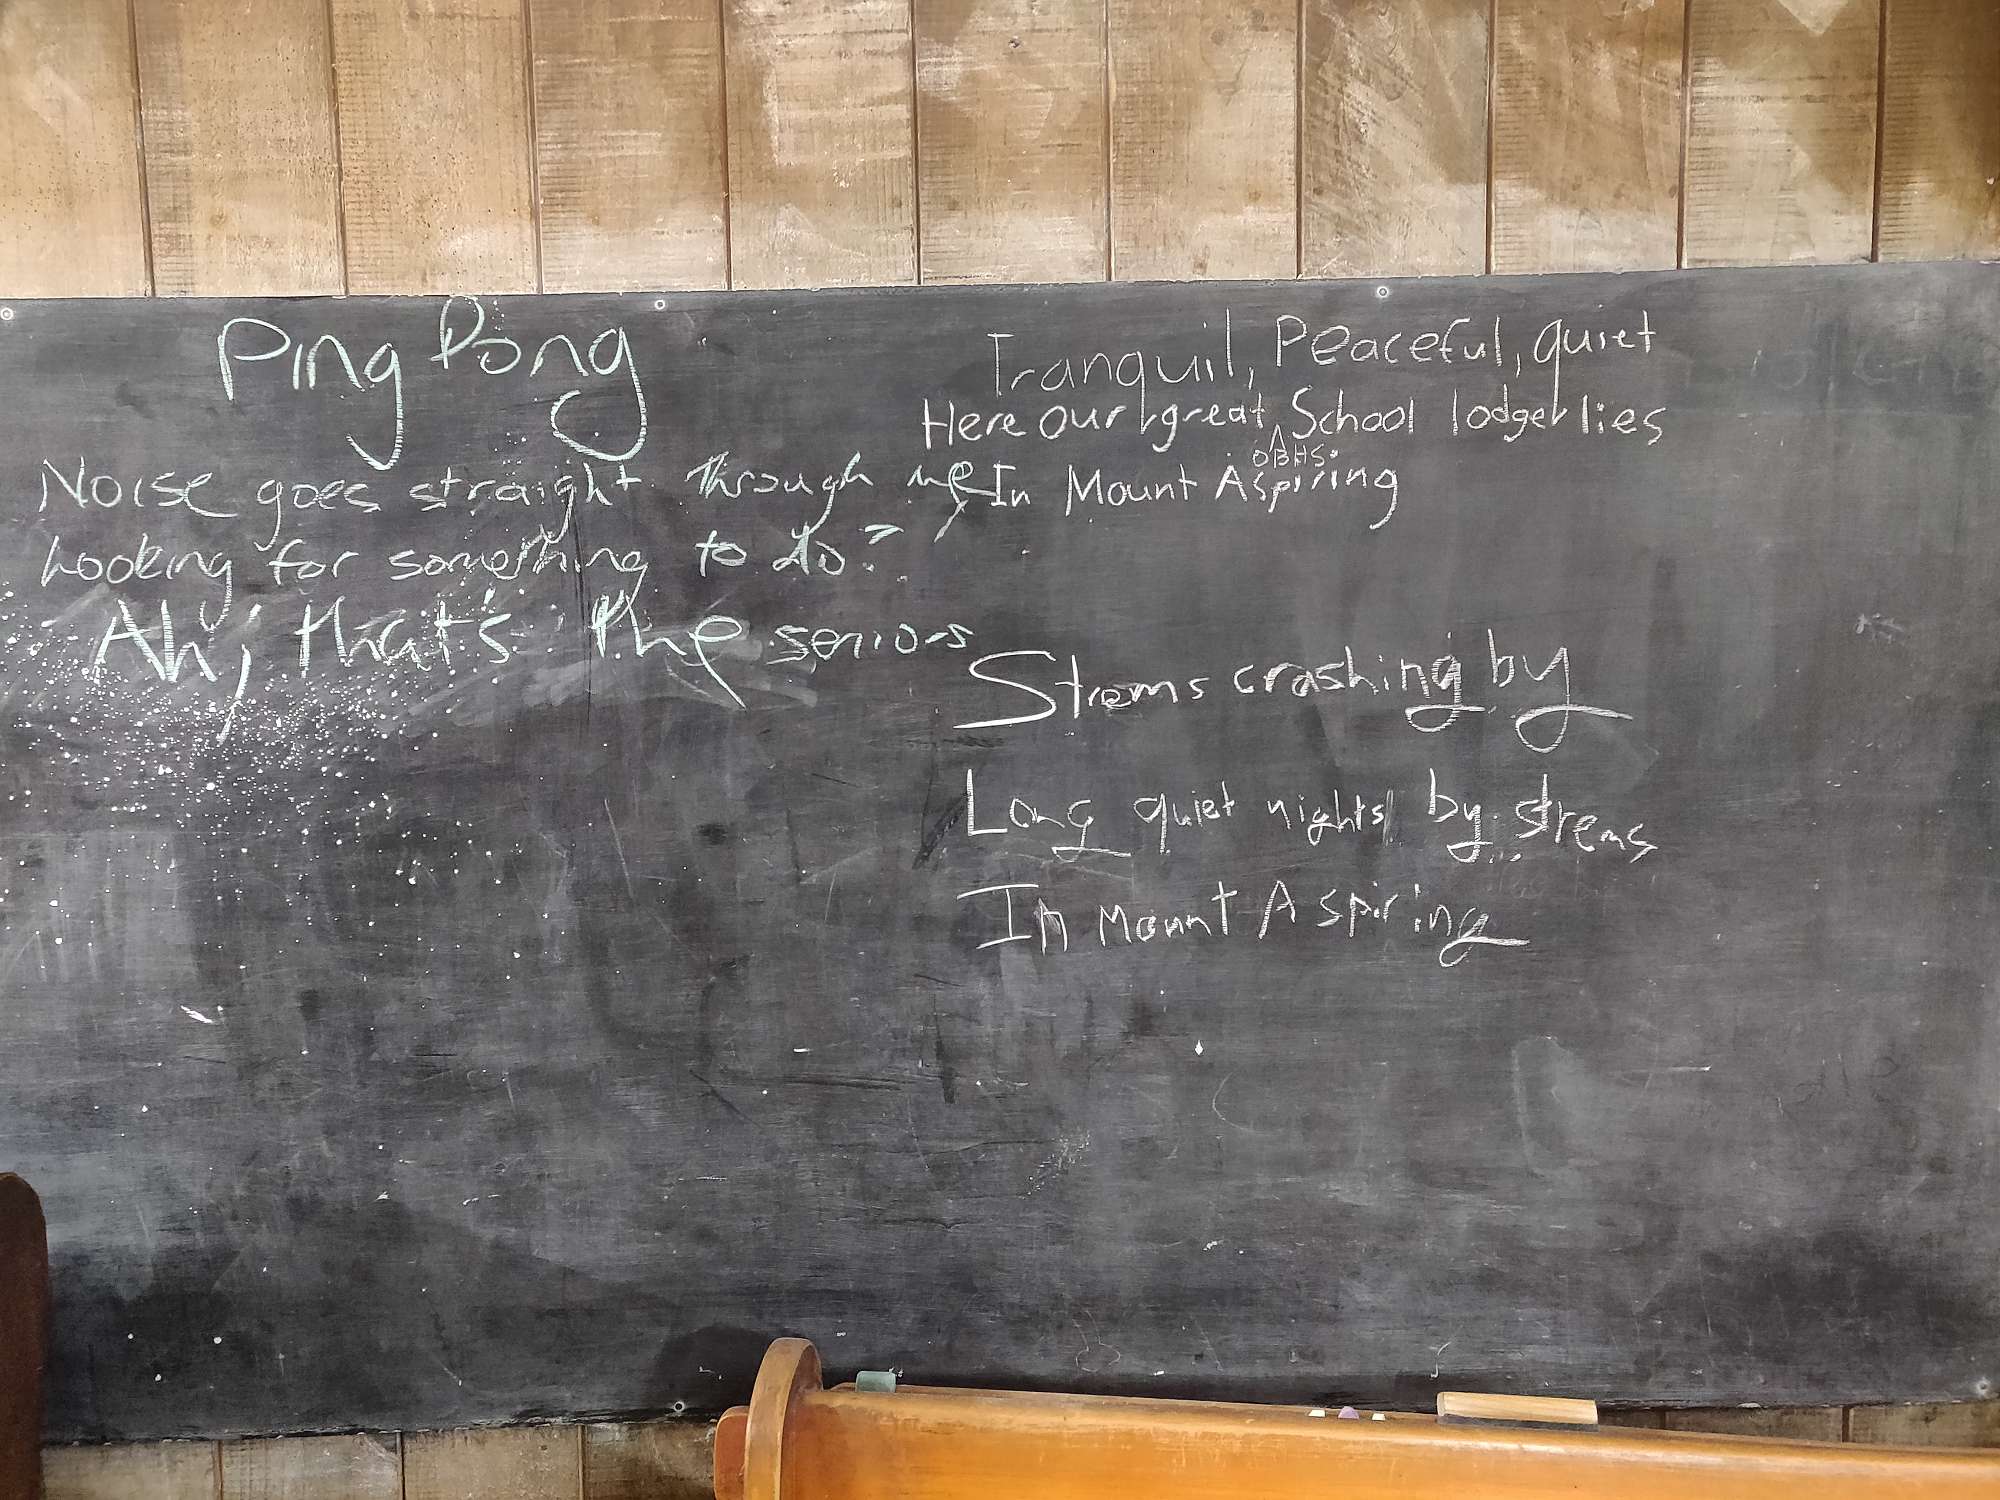 Ping Pong
Noise goes straight through me,
Looking for something to do?
Ah, that's the seniors
Tranquil, Peaceful, quiet
Here our great School lodge lies
OBHS
In Mount Aspiring
Strems crashing by
Long quiet nights by strems
In Mount Aspiring